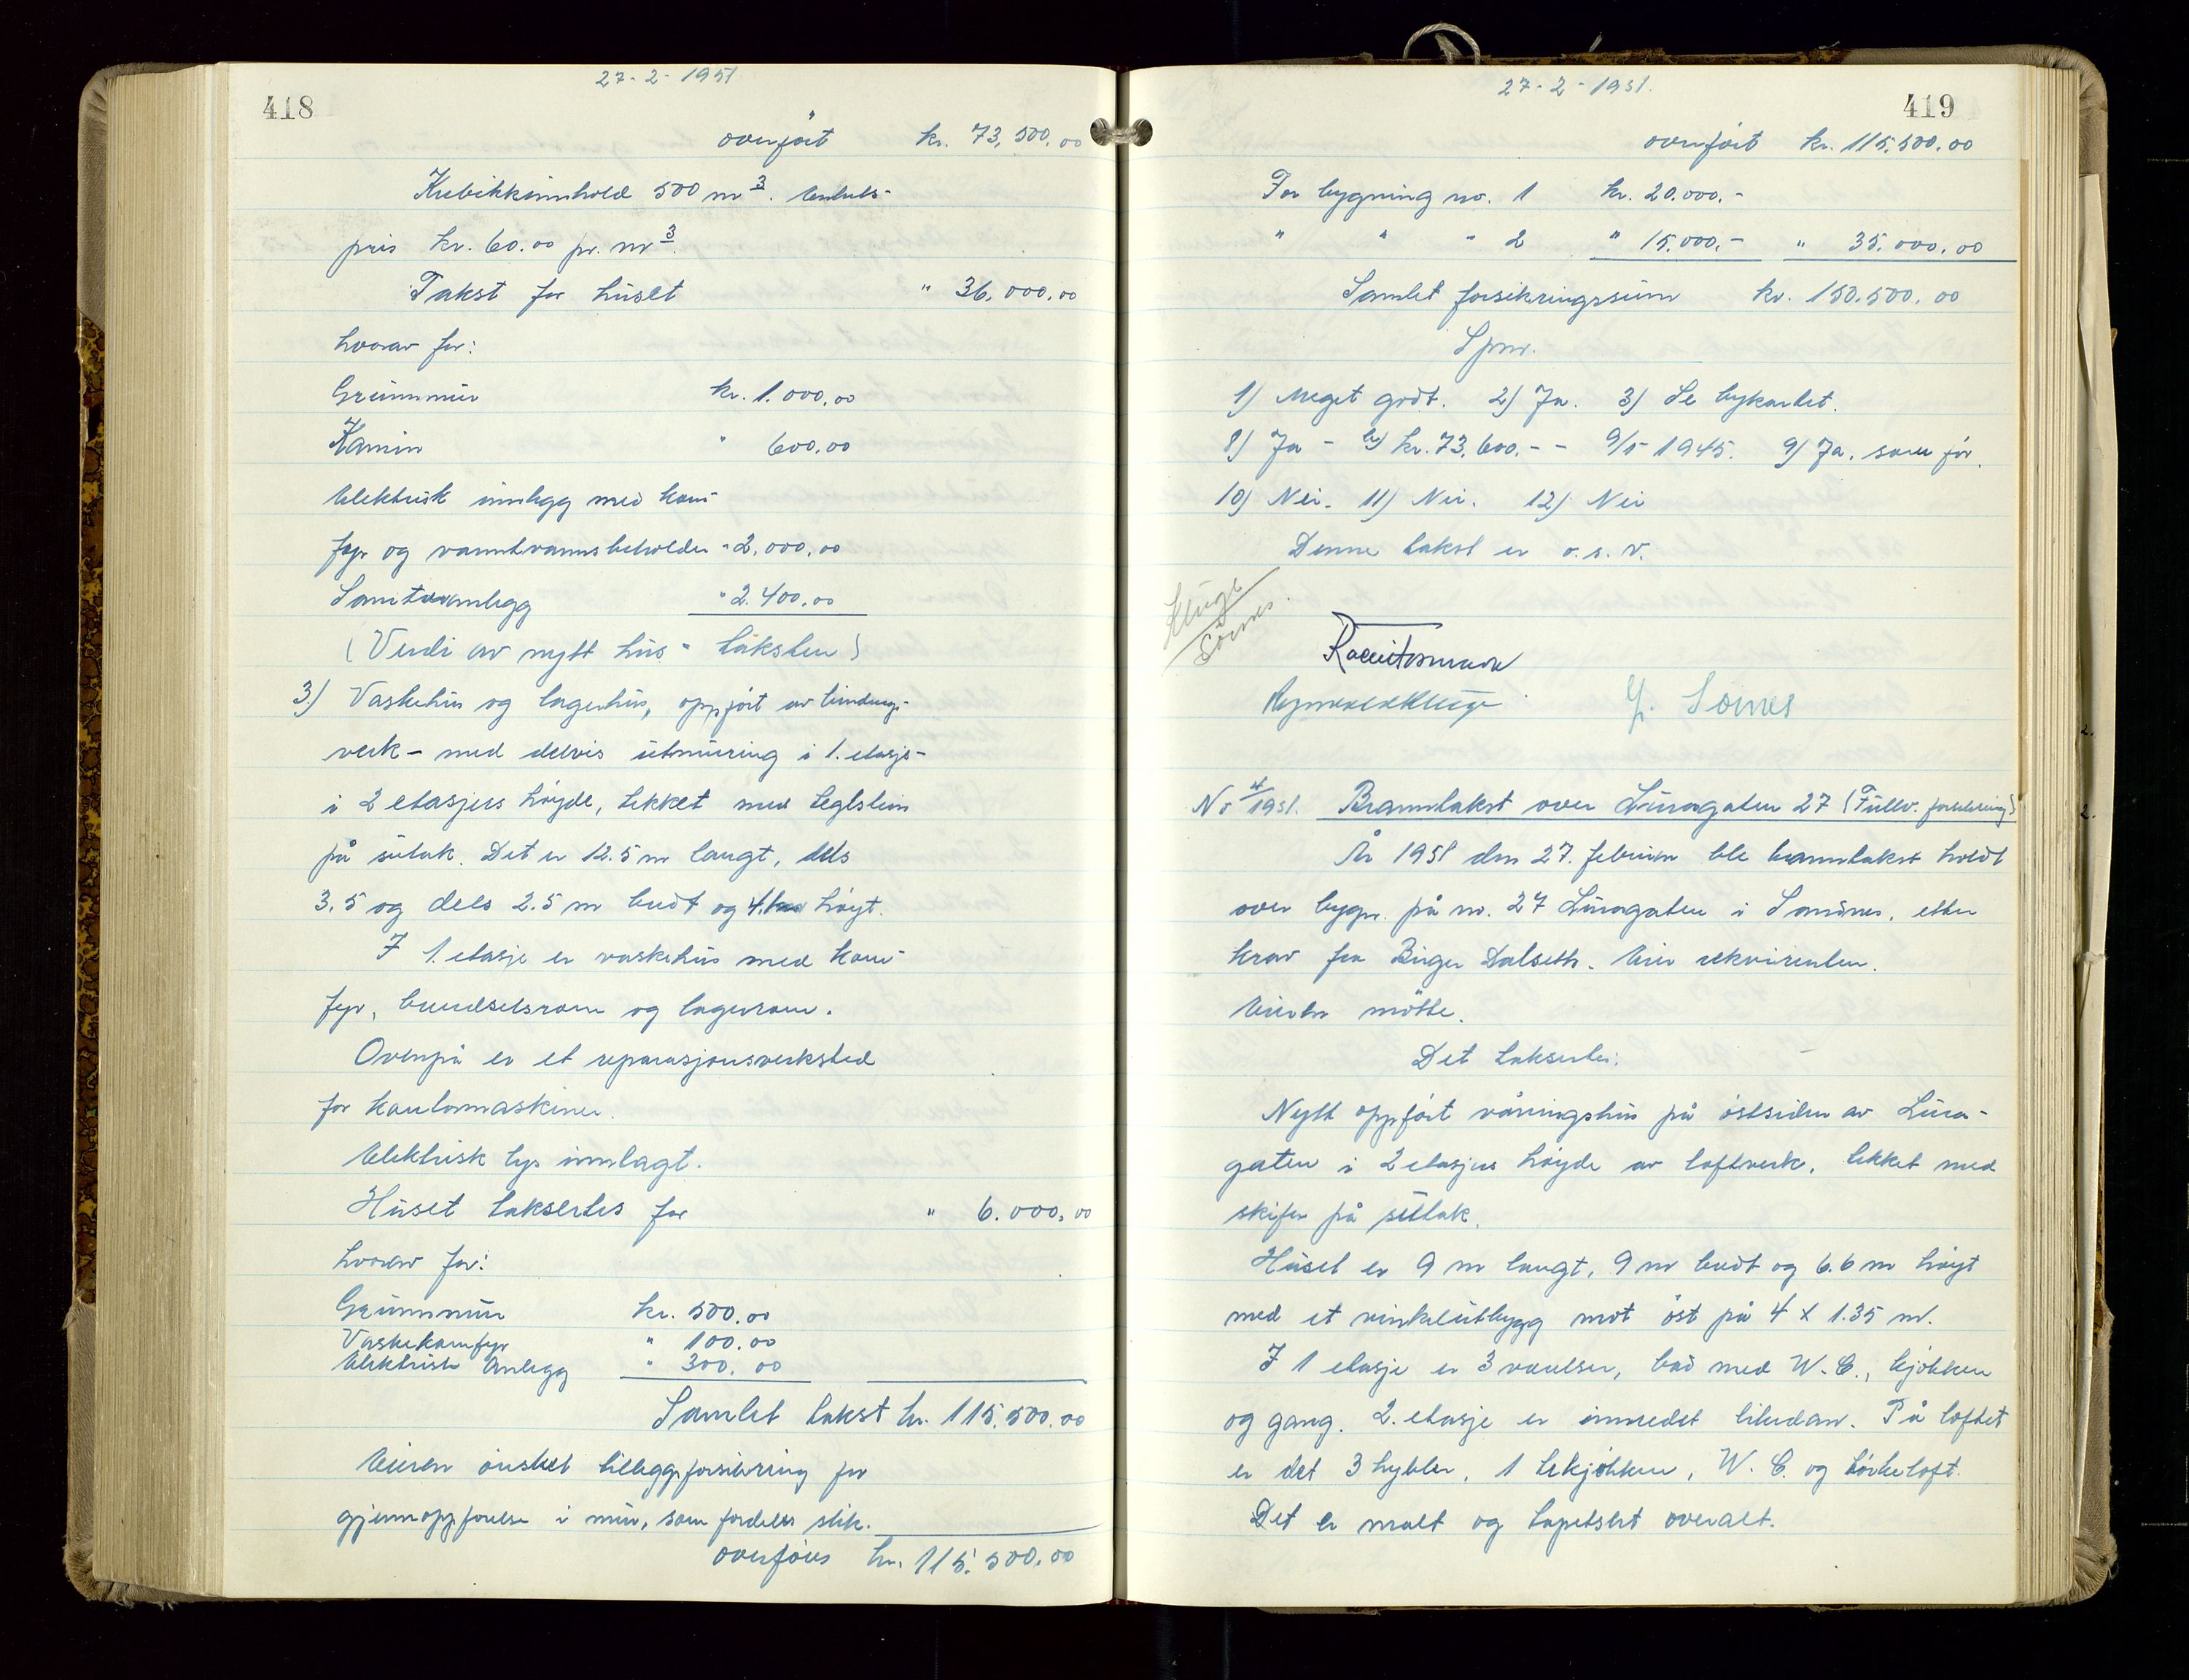 418
27-2-1951
overført kr. 73,500.00
Kubikkinnhold 500 m3. Enhets-
pris kr. 60.00 pr. m3.
Takst for huset " 36.000.00
hvorav for:
Grunnmur kr. 1.000.00
Kamin " 600.00
Elektrisk innlegg med kom-
fyr og varmtvannsbeholder " 2.000.00
Sanitæranlegg " 2.400.00
(Verdi av nytt hus = taksten)
3) Vaskehus og lagerhus, oppført av bindings-
verk - med delvis utmuring i 1. etasje -
i 2 etasjers høyde, tekket med teglstein
på sutak. Det er 12.5 m langt, dels
3.5 og dels 2.5 m bredt og høyt.
I 1. etasje er vaskehus med kom-
fyr, brendselsrom og lagerrom.
Ovenpå er et reparasjonsverksted
for kontormaskiner.
Elektrisk lys innlagt.
Huset takseres for " 6.000,00
hvorav for:
Grunnmur kr. 500.00
Vaskekomfyr " 100.00
Elektrisk anlegg " 300.00
Samlet takst kr. 115.500.00
Eieren ønsket tilleggsforsikring for
gjennoppførelse i mur, som fordeles slik.
overføres kr. 115.500.00
27-2-1951.
419
overført kr. 115.500.00
For bygning no. 1 kr. 20.000.-
" " " 2 " 15.000.- " 35.000,00
Samlet forsikringssum kr. 150.500.00
Spm.
1) Meget godt. 2) Ja. 3) Se bykartet.
8) Ja - b) kr. 73.600.- - 9/5 1945. 9) Ja, som før.
10) Nei. 11) Nei. 12) Nei
Denne takst er o.s.v.
Kluge
Sømes
No 4/1951. Branntakst over Luragaten 27 (Fullv. forsikring)
År 1951 den 27. februar ble branntakst holdt
over bygn. på no. 27 Luragaten i Sandnes, etter
krav fra Birger Dalseth. Eier rekvirenten.
Eieren møtte.
Det takseres:
Nytt oppført våningshus på østsiden av Lura-
gaten i 2 etasjers høyde av loftverk, tekket med
skifer på sutak.
Huset er 9 m langt, 9 m bredt og 6.6 m høyt
med et vinkelutbygg mot øst på 4 x 1.35 m.
I 1 etasje er 3 værelser, bad med W.C., kjøkken
og gang. 2. etasje er innredet likedan. På loftet
er det 3 hybler, 1 tekjøkken, W.C. og tørkeloft.
Det er malt og tapetsert overalt.